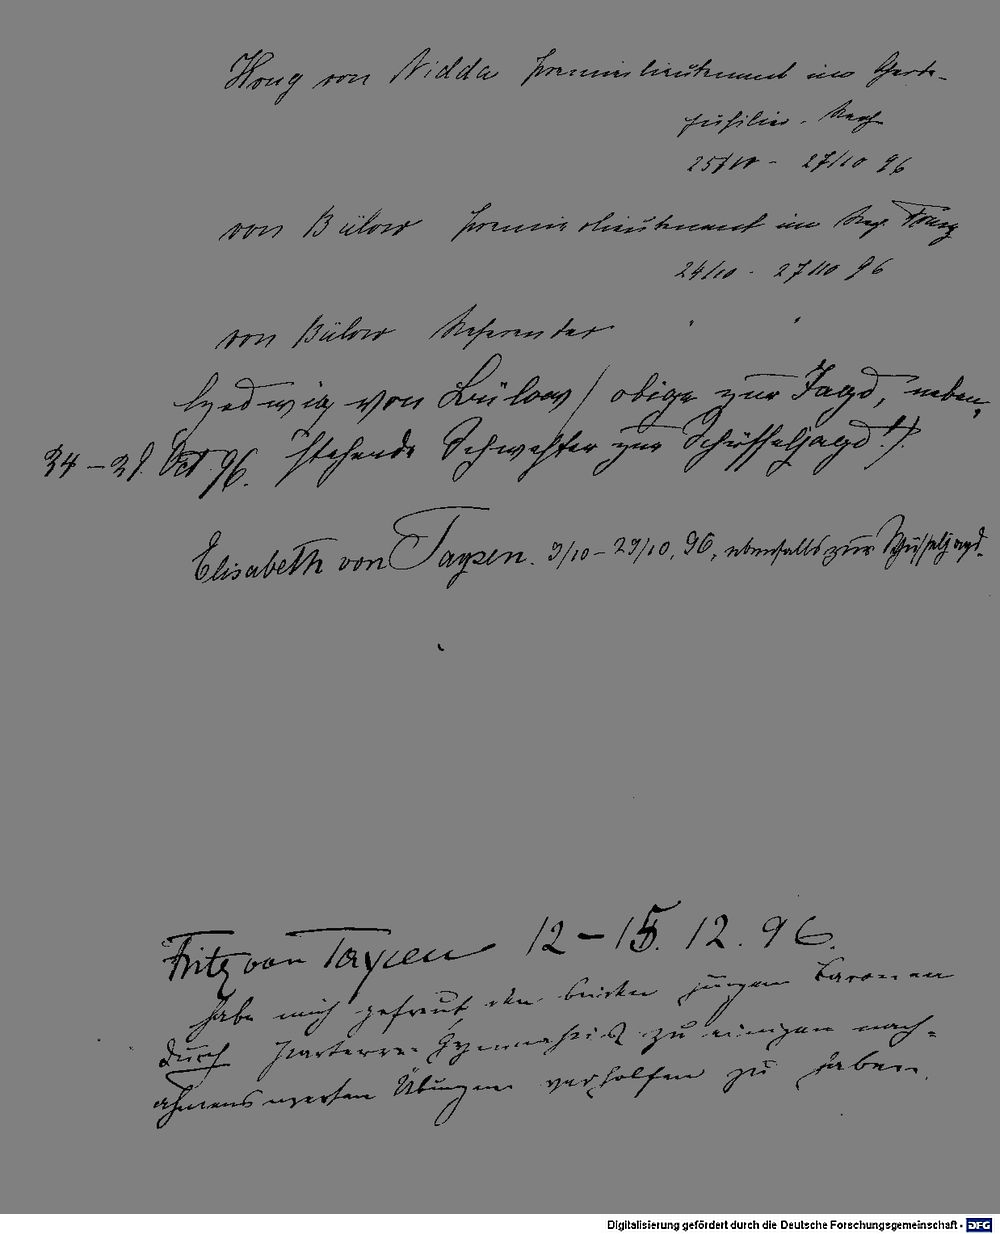 Houg von Nidda Premierlieutenant im Garde-
Füsilier-Regt
25/10 - 27/10 96
von Bülow Premierlieutenant im Reg. Franz
24/10 - 27/10 96
von Bülow Referendar " "
Hedwig von Bülow (obige zur Jagd, neben-
24 - 29. Oct. 96. stehende Schwester zur Schüsseljagd!).
Elisabeth von Taysen. 9/10 - 29/10. 96, ebenfalls zur Schüsseljagd.
Fritz von Taysen 12 - 15. 12. 96.
habe mich gefreut den beiden jungen Baronen
durch Parterre-Gymnastik zu einigen nach-
ahmenswerten Übungen verholfen zu haben.
Digitalisierung gefördert durch die Deutsche Forschungsgemeinschaft - DFG